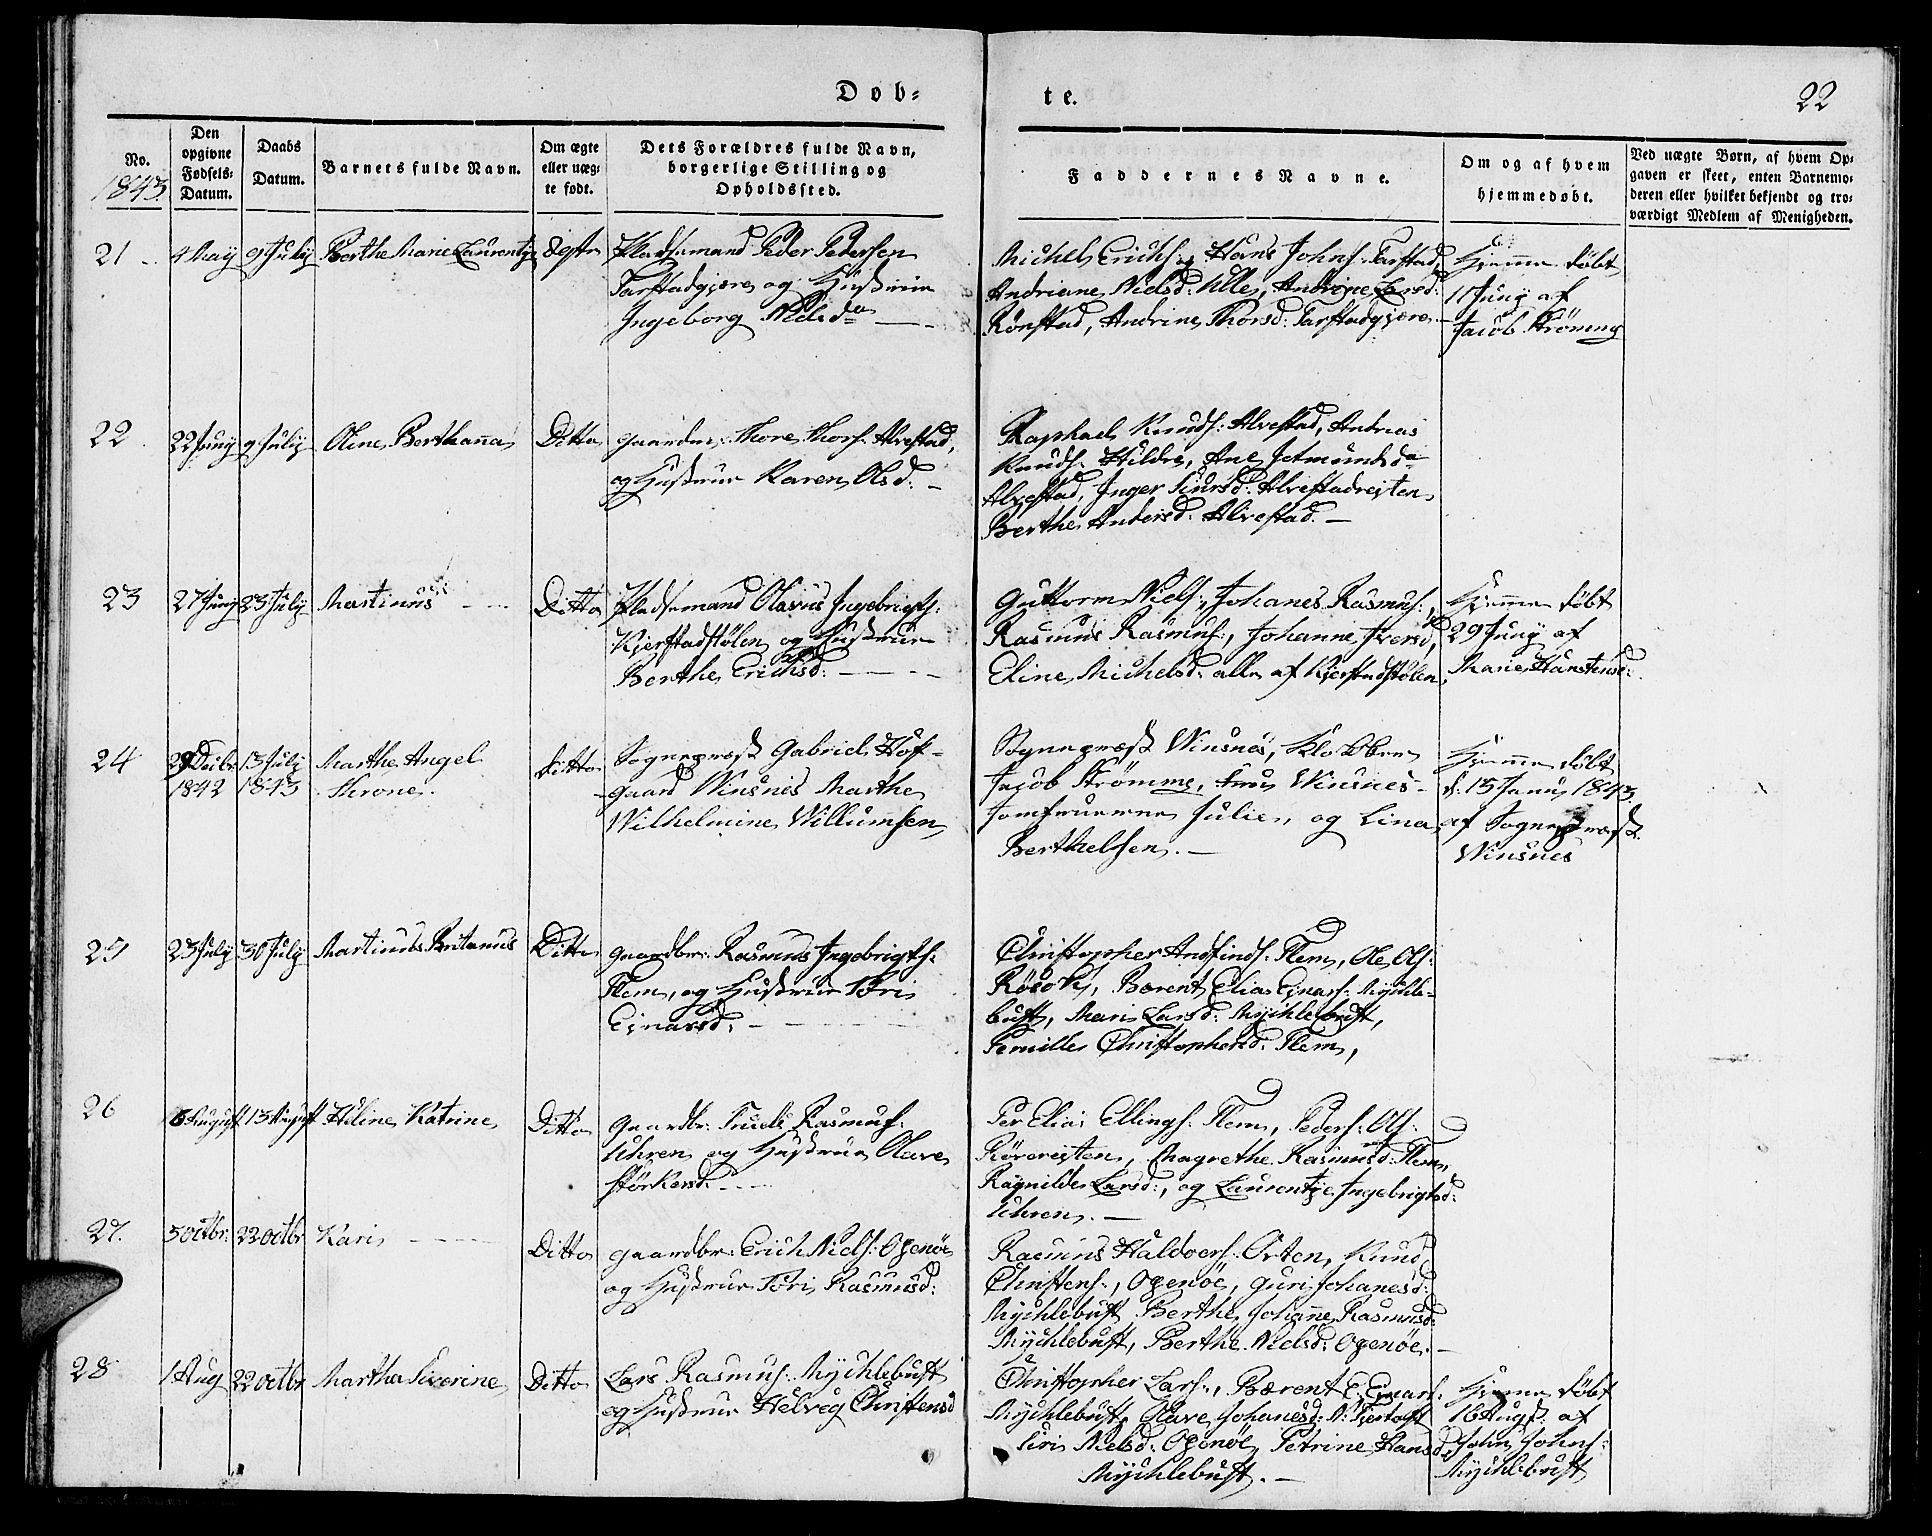 Døb-
te.
22
No.
1843
Den opgivne Fødsels-Datum.
Daabs Datum.
Barnets fulde Navn.
Om ægte eller uæg-te født.
Dets Forældres fulde Navn, borgerlige Stilling og Opholdssted.
Faddernes Navne.
Om og af hvem hjemmedøbt.
Ved uægte Børn, af hvem Op-gaven er skeet, enten Barnemo-deren eller hvilket bekjendt og tro-værdigt Medlem af Menigheden.
21
4 May
9 July
Berthe Marie Laurentze
ægte
Pladsemand Peder Pedersen
Tarstadgjære og Hustrue
Ingeborg Nielsd:
Michel Erichs:, Hans Johns: Tarstad,
Andriane Nielsd: Ulle, Andrine Larsd:
Rønstad, Andrine Thorsd: Tarstadgjære
Hjemme døbt
11 Juny af
Jacob Strømme
22
22 Juny
9 July
Oline Berthaña
Ditto
Gaardm: Thore Thors: Alvestad,
og Hustrue Karen Olsd: –
Raphael Knuds: Alvestad, Andreas
Knuds: Hildre, Ane Jetmundsd:
Alvestad, Inger Siursd: Alvestadreiten
Berthe Andersd: Alvestad. –
23
27 Juny
23 July
Martinus
Ditto
Pladsemand Olavus Ingebrigts:
Kjerstadstølen og Hustrue
Berthe Erichsd:
Guttorm Niels:, Johanes Rasmus:,
Rasmus Rasmus:, Johanne Iversd:,
Eline Michelsd: alle af Kjerstadstølen,
Hjemme døbt
29 Juny af
Marie Hanstensd:
24
29 Decbr
1842
13 July
1843
Marthe Angel
Throne.
Ditto
Sognepræst Gabriel Hof-
gaard Winsnes Marthe
Wilhelmine Willumsen
Sognepræst Winsnes, Klokker
Jacob Strømme, Winsnes
Jomfruerne Julie, og Lina
Berthelsen. –
Hjemme døbt
d: 15 Janu 1843.
af Sognepræst
Winsnes
25
23 July
30 July
Martinus Britanus
Ditto
Gaardbr: Rasmus Ingebrigts:
Flem, og Hustrue Siri
Ejnarsd:
Christopher Andfinds: Flem, Ole Ols:
Rösok, Bærent Elias Ejnars: Mychle-
bust, Maren Larsd: Mychlebust,
Pernille Christophersd: Flem,
26
6 August
13 August
Heline Katrine
Ditto
Gaardbr: Truls Rasmus:
Uhren og Hustrue Olave
Størkersd:
Per Elias Ellings: Flem, Peders: Ols:
Rørereiten, Magrethe Rasmusd: Flem,
Ragnilde Larsd:, og Laurentze Ingebrigtsd:
Uhren. –
27.
5 Octbr:
22 Octbr
Kari
Ditto
Gaardbr: Erich Niels: Ogenöe
og Hustrue Siri Rasmusd:
Rasmus Haldoers: Orten, Knud
Christens:, Ogenöe, Guri Johanesd:
Mychlebust Berthe Johañe Rasmusd:
Mychlebust, Berthe Nielsd: Ogenöe. –
28
1 Aug
22 Octbr
Marthe Siverine
Ditto
Lars Rasmus: Mychlebust
og Hustrue Helveg Christensd
Christopher Lars:, Bærent E. Ejnars:
Mychlebust, Olave Johanesd: N: Fjertoft
Siri Nielsd: Ogenöe, Petrine Hansd:
Mychlebust. –
Hjemme døbt
16 Augs: af
John Johns:
Mychlebust